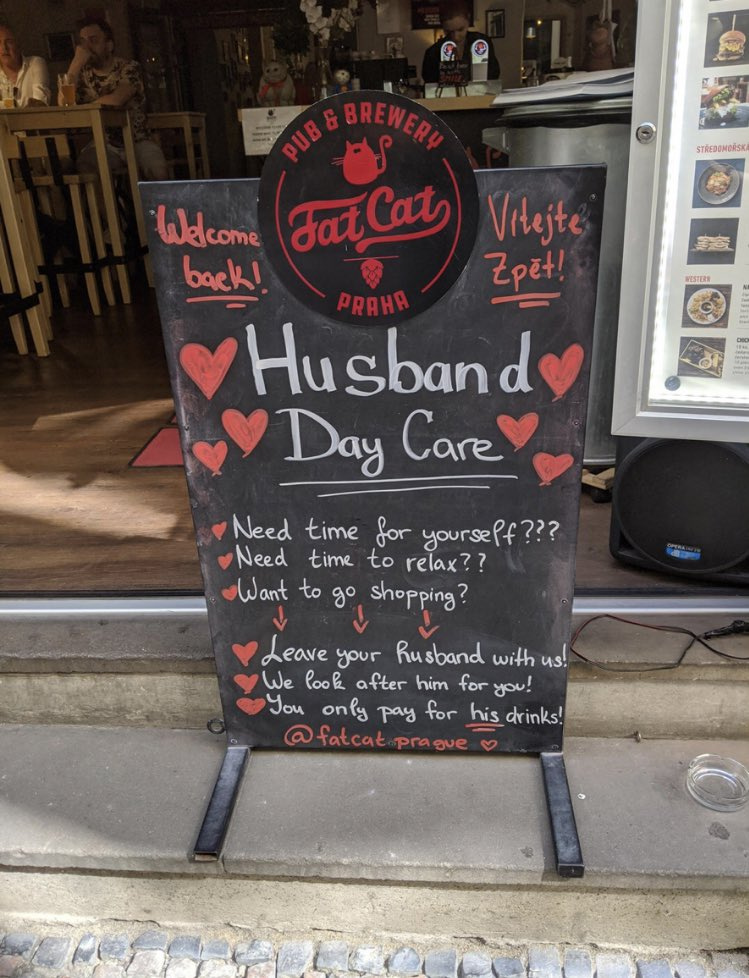 PUB & BREWERY
Fat Cat
PRAHA
Welcome
back!
Vítejte
Zpět!
Husband
Day Care
Need time for yourself???
Need time to relax??
Want to go shopping?
Leave your husband with us!
We look after him for you!
You only pay for his drinks!
@fatcat_prague
STŘEDOMOŘSKÁ
WESTERN
OPERA